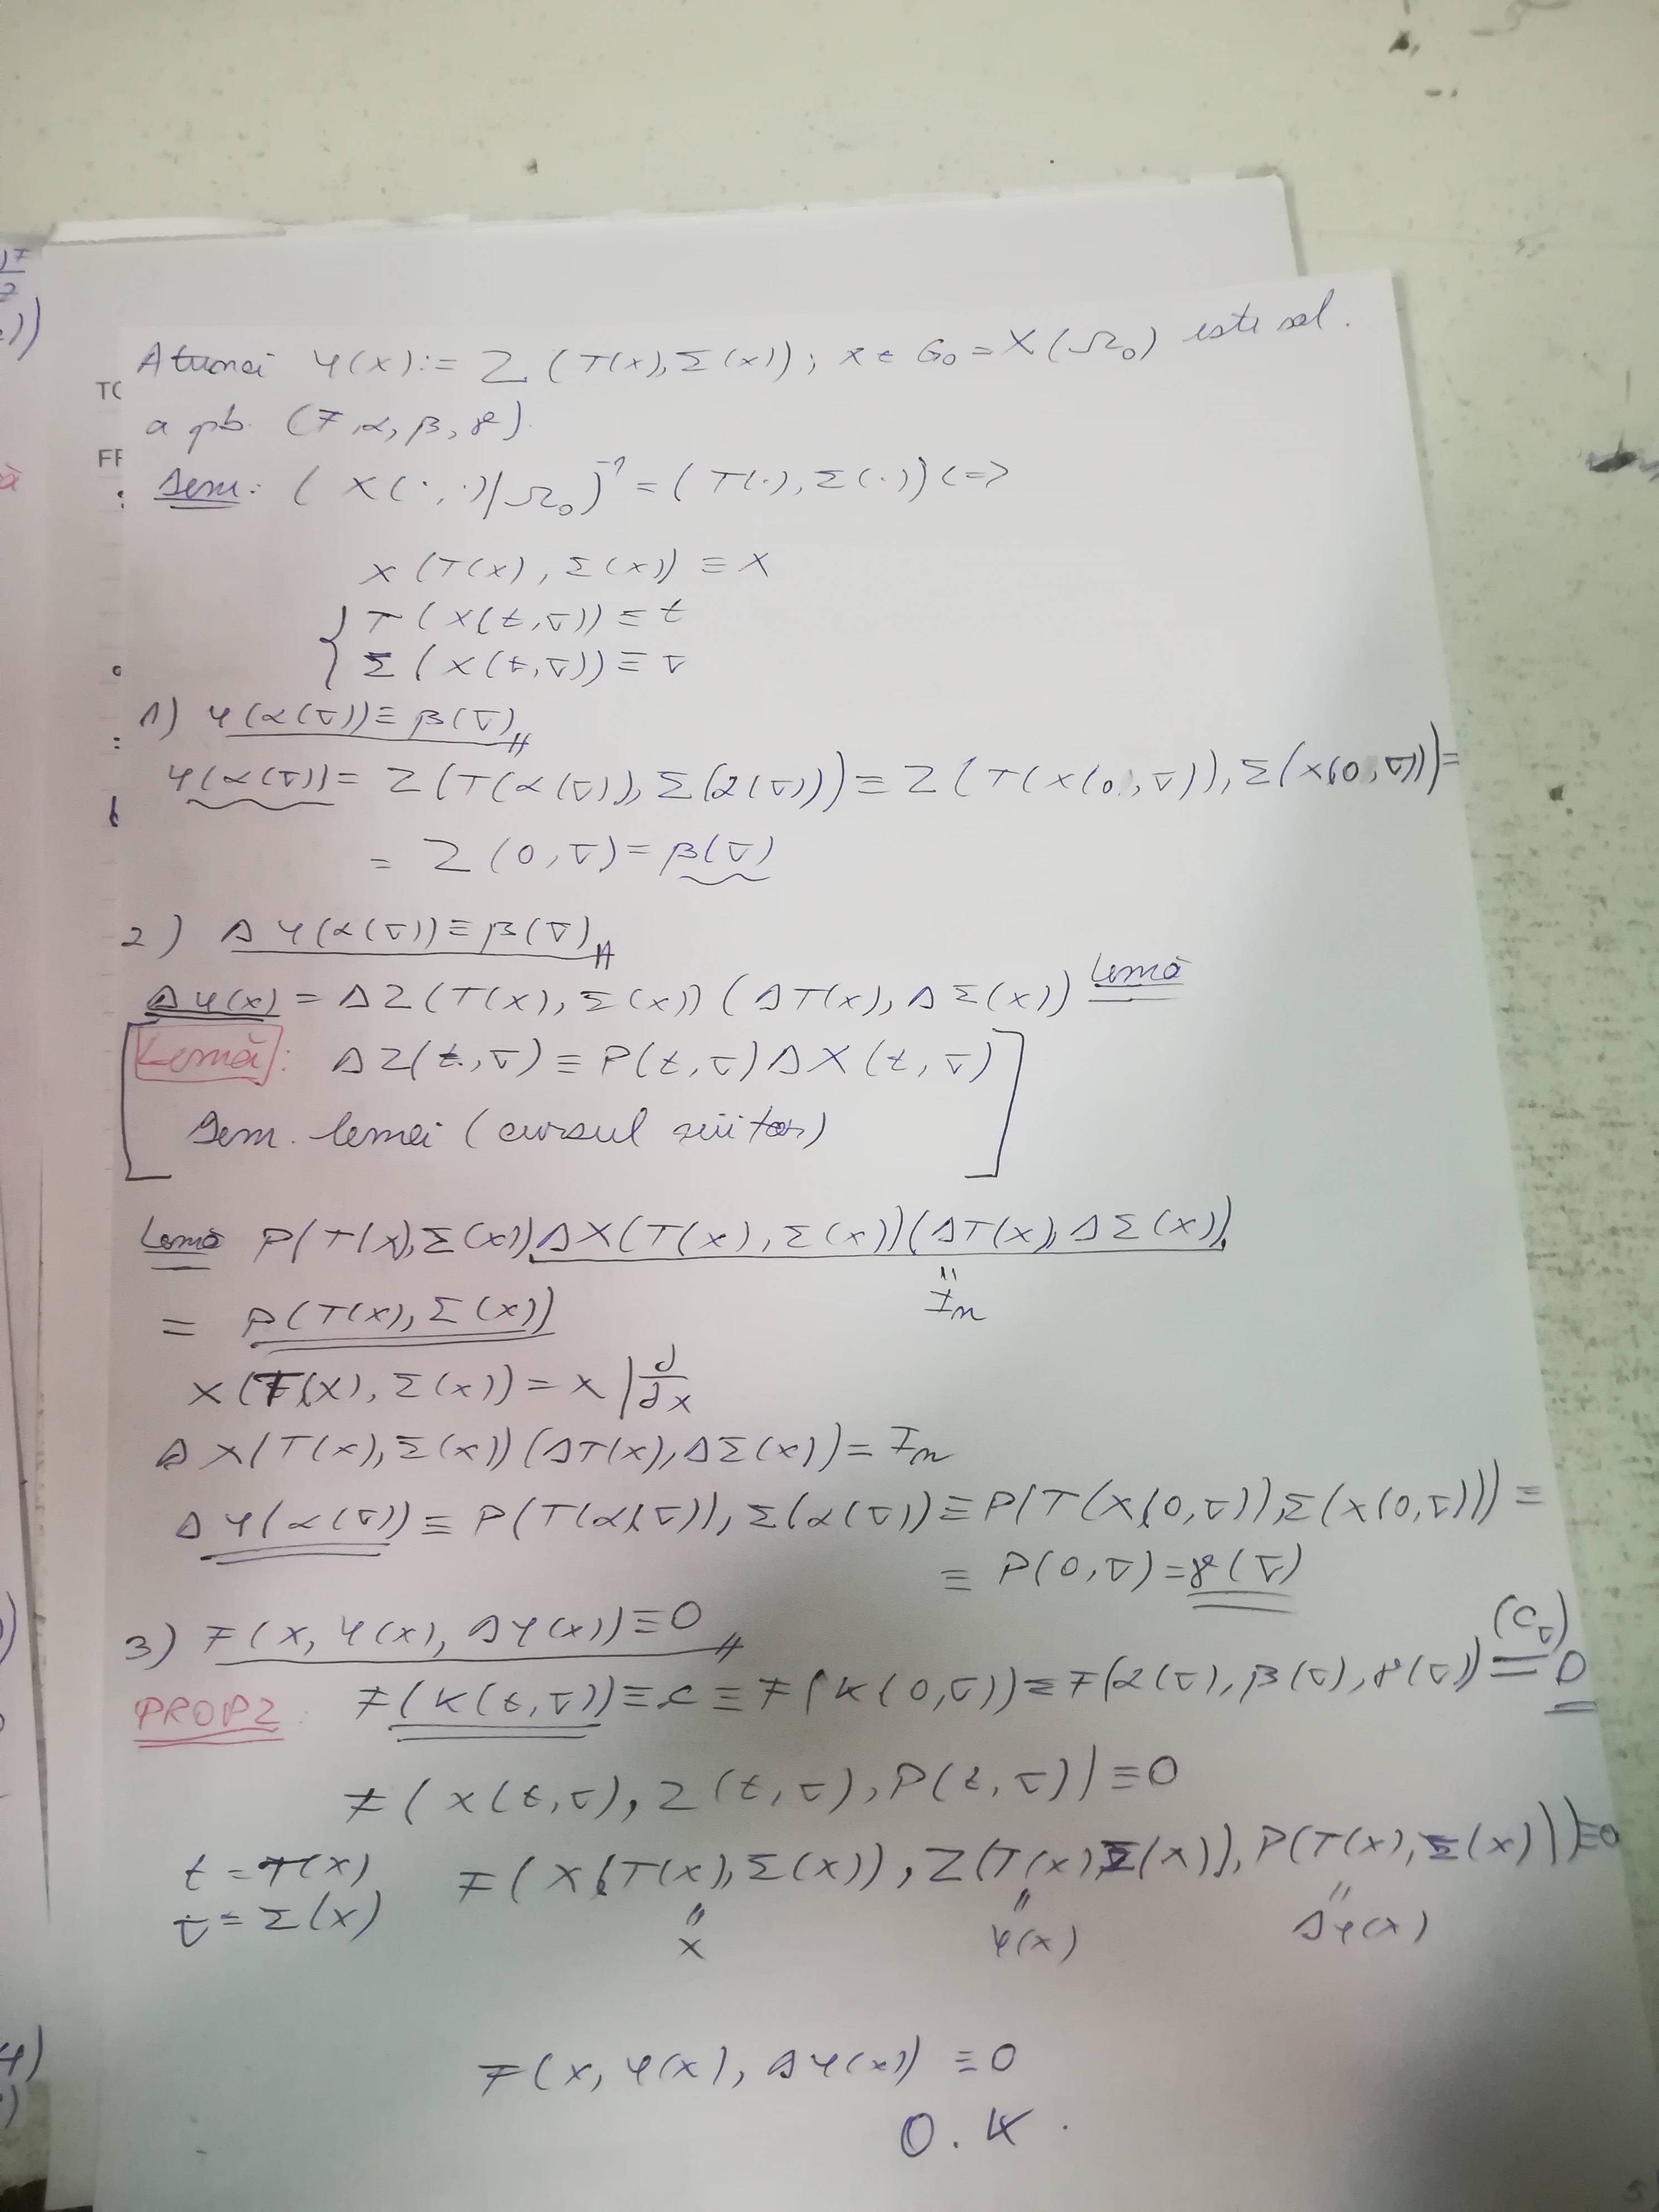 Atunci φ(x):= Z (T(x), Σ(x)); x ∈ G₀ = X(Ω₀) este sol.
a pb. (F, α, β, γ).
Dem: (X(·,·)|Ω₀)⁻¹ = (T(·), Σ(·)) <=>
X (T(x), Σ(x)) ≡ X
{ T (X(t,σ)) ≡ t
Σ (X(t,σ)) ≡ σ
1) φ(α(σ)) ≡ β(σ)
φ(α(σ)) = Z(T(α(σ)), Σ(α(σ))) ≡ Z(T(X(0,σ)), Σ(X(0,σ))) =
= Z(0,σ) = β(σ)
2) Δφ(α(σ)) ≡ β(σ)
Δφ(x) = ΔZ(T(x), Σ(x)) (ΔT(x), ΔΣ(x)) Lemă
Lemă: ΔZ(t,σ) ≡ P(t,σ) ΔX(t,σ)
Dem. lemei (cursul viitor)
Lemă P(T(x), Σ(x)) ΔX(T(x), Σ(x)) (ΔT(x), ΔΣ(x))
" Iₙ
= P(T(x), Σ(x))
X(T(x), Σ(x)) = X | ∂/∂x
ΔX(T(x), Σ(x)) (ΔT(x), ΔΣ(x)) = Iₙ
Δφ(α(σ)) ≡ P(T(α(σ)), Σ(α(σ)) ≡ P(T(X(0,σ)), Σ(X(0,σ))) ≡
≡ P(0,σ) = γ(σ)
3) F(x, φ(x), Δφ(x)) ≡ 0
PROP2: F(K(t,σ)) ≡ c ≡ F(K(0,σ)) ≡ F(α(σ), β(σ), γ(σ)) = (Cσ) 0
F(X(t,σ), Z(t,σ), P(t,σ)) ≡ 0
t = T(x) F(X(T(x), Σ(x)), Z(T(x), Σ(x)), P(T(x), Σ(x))) ≡ 0
σ = Σ(x) " x " φ(x) " Δφ(x)
F(x, φ(x), Δφ(x)) ≡ 0
O.K.